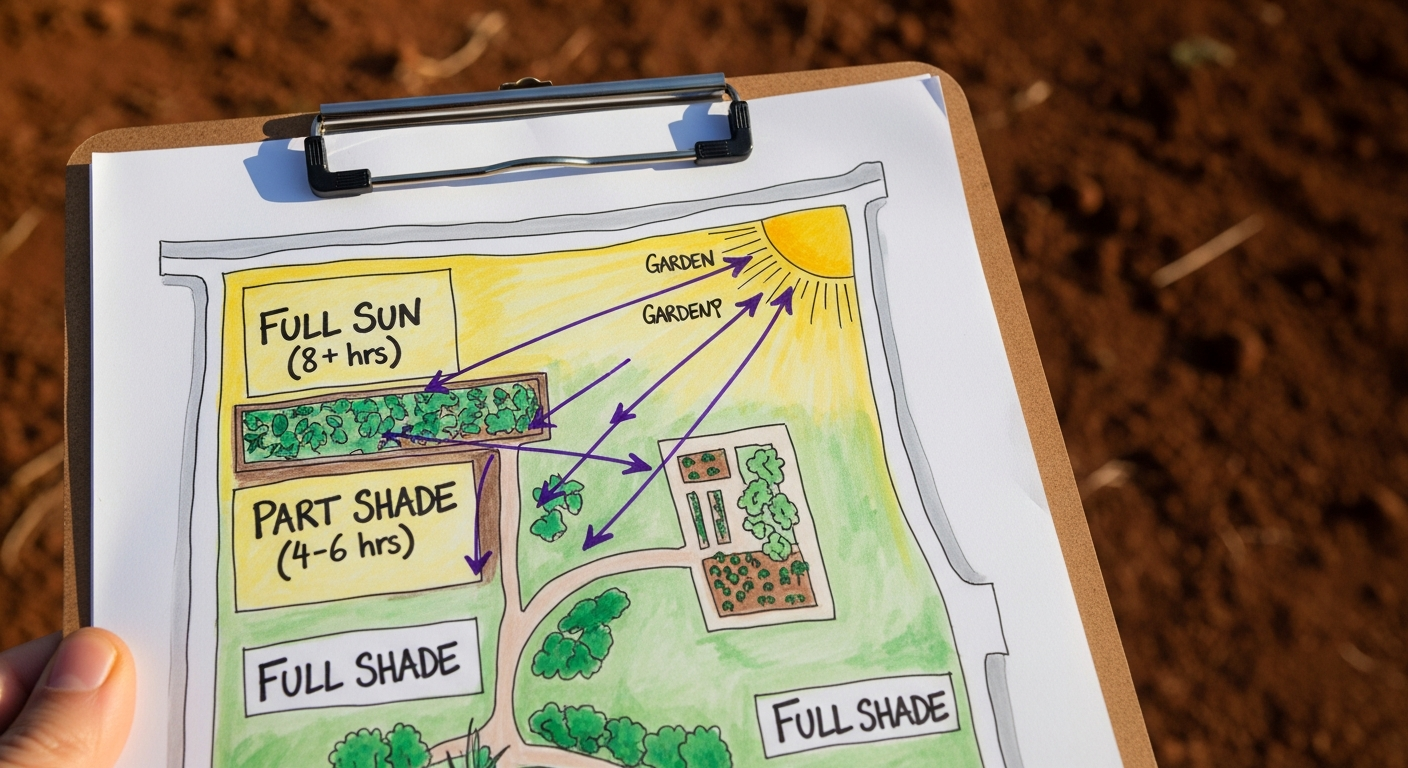 GARDEN
GARDEN?
FULL SUN
(8+ hrs)
PART SHADE
(4-6 hrs)
FULL SHADE
FULL SHADE